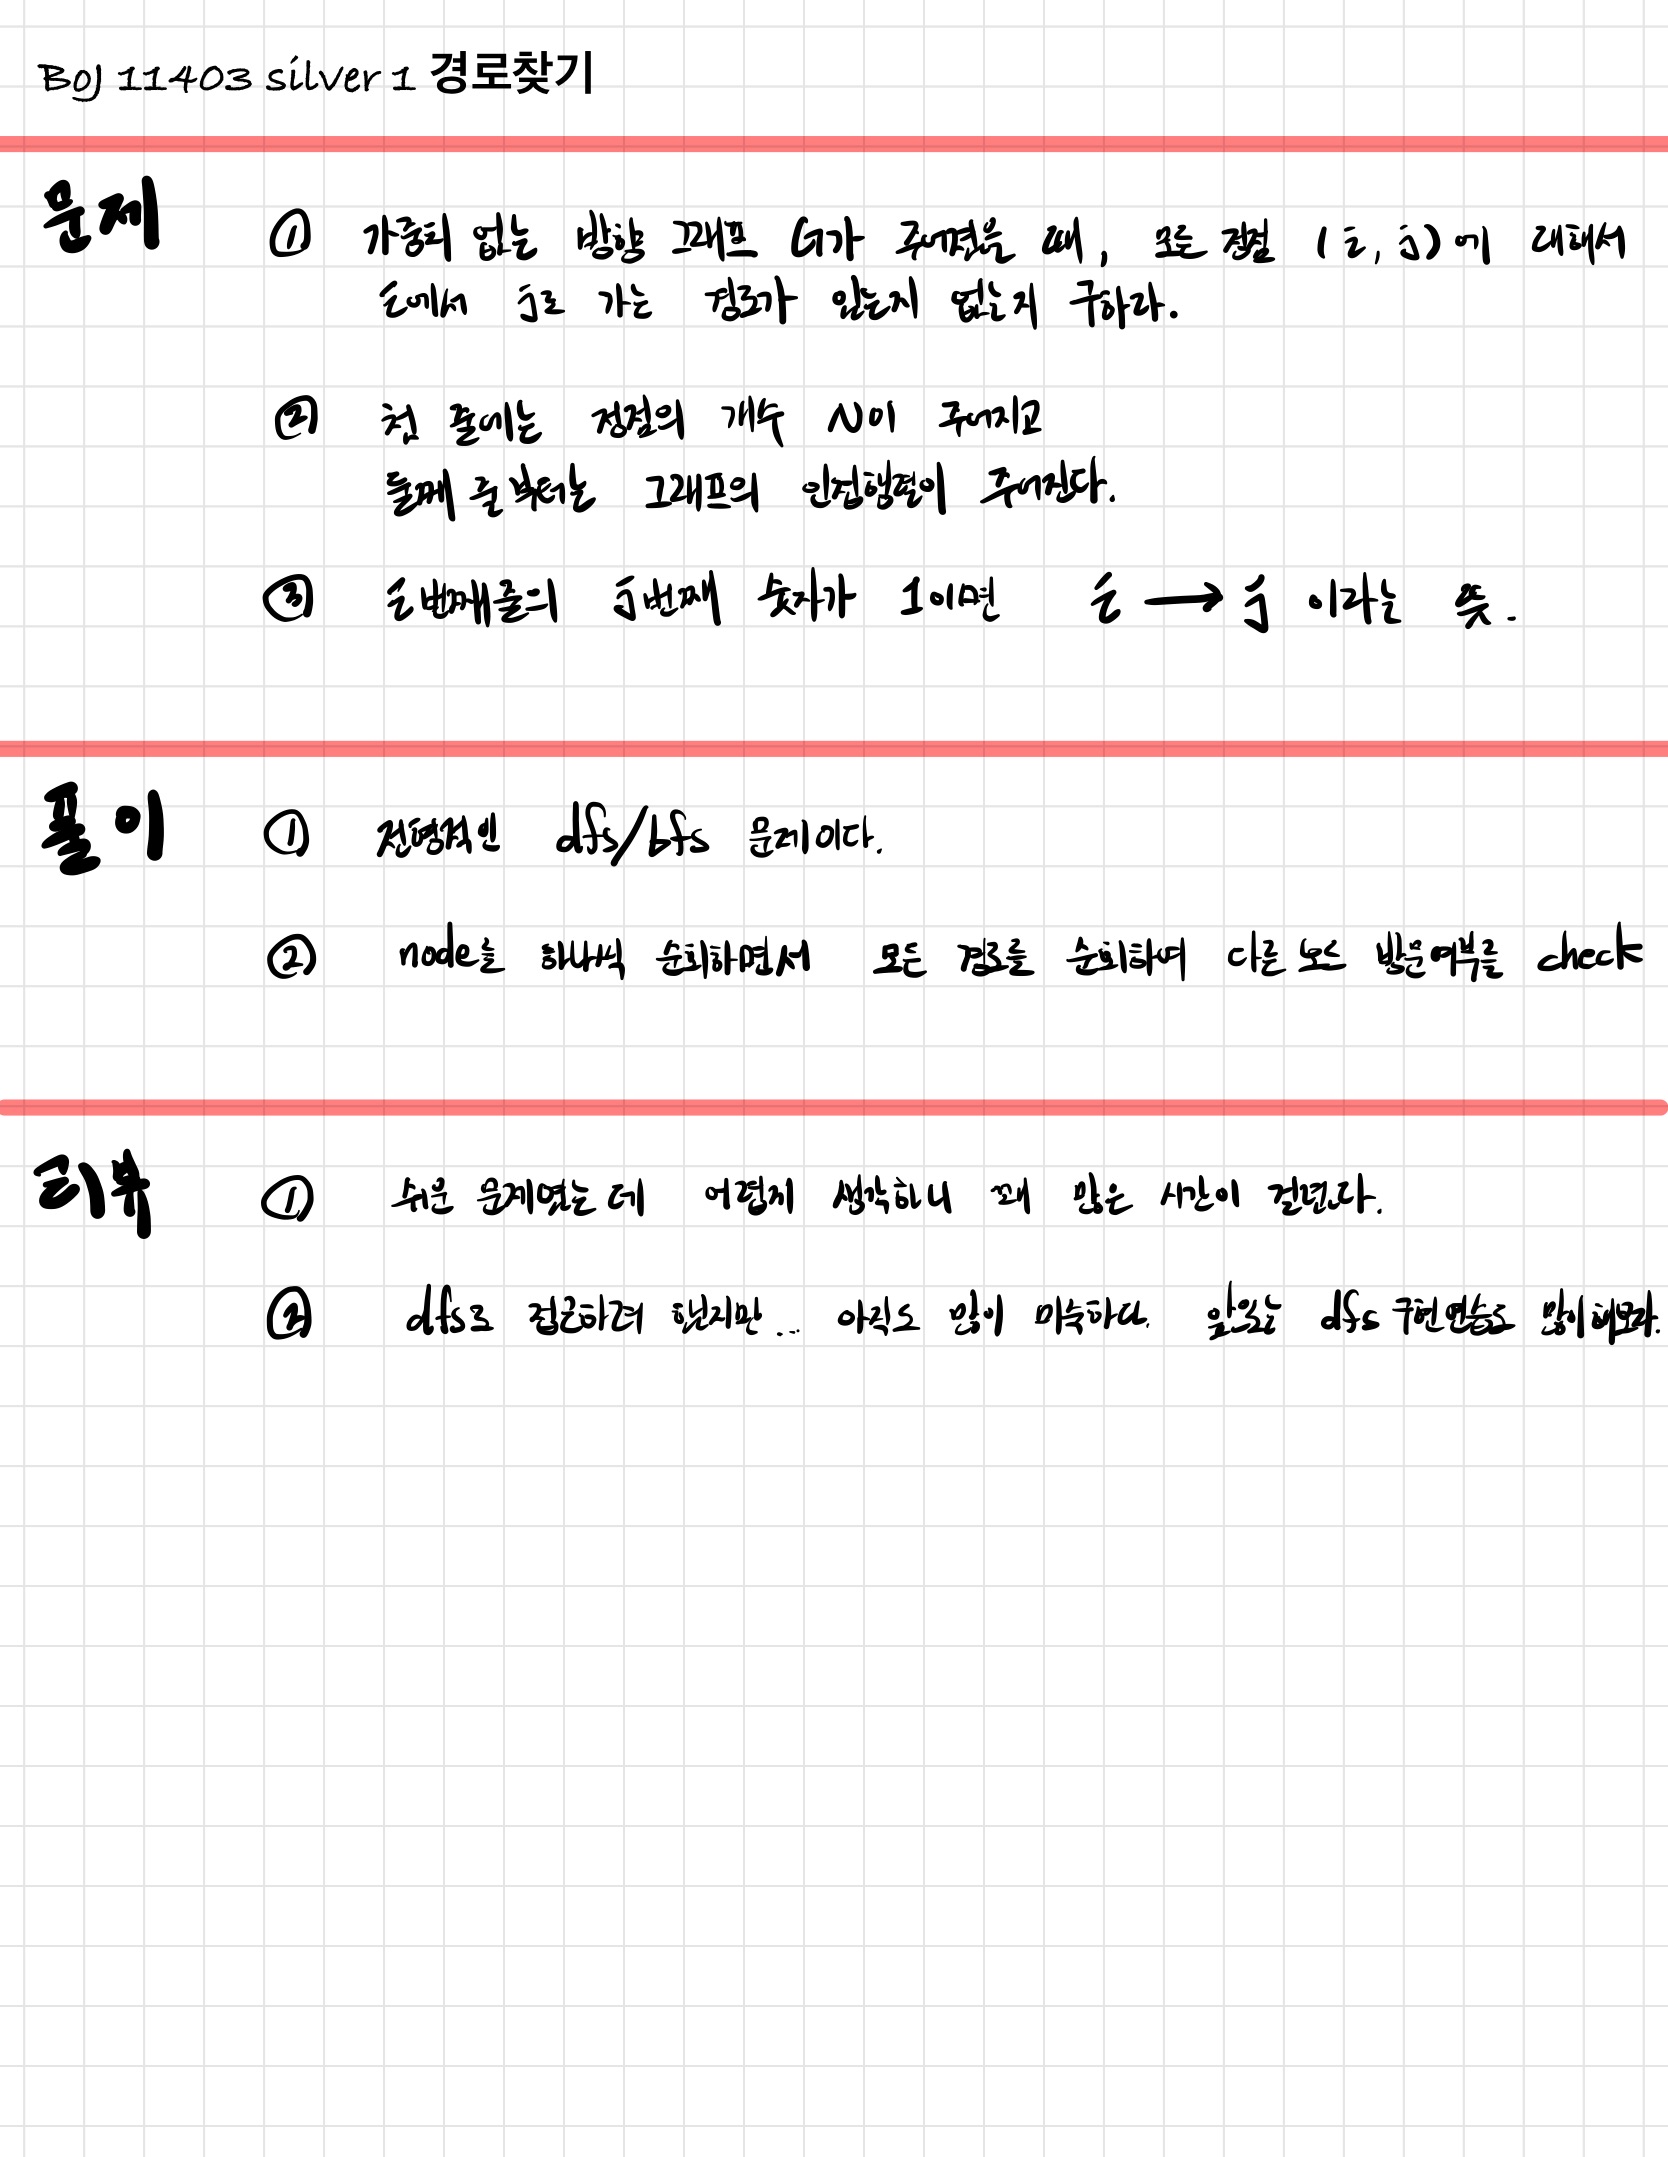 BOJ 11403 silver 1 경로찾기
문제 ① 가중치 없는 방향 그래프 G가 주어졌을 때, 모든 정점 (i, j)에 대해서
i에서 j로 가는 경로가 있는지 없는지 구하라.
② 첫 줄에는 정점의 개수 N이 주어지고
둘째 줄부터는 그래프의 인접행렬이 주어진다.
③ i번째줄의 j번째 숫자가 1이면 i → j 이라는 뜻.
풀이 ① 전형적인 dfs/bfs 문제이다.
② node를 하나씩 순회하면서 모든 경로를 순회하며 다른 노드 방문여부를 check
리뷰 ① 쉬운 문제였는데 어렵게 생각하니 꽤 많은 시간이 걸렸다.
② dfs로 접근하려 했지만... 아직도 많이 미숙하다. 앞으로는 dfs 구현 연습도 많이 해보라.